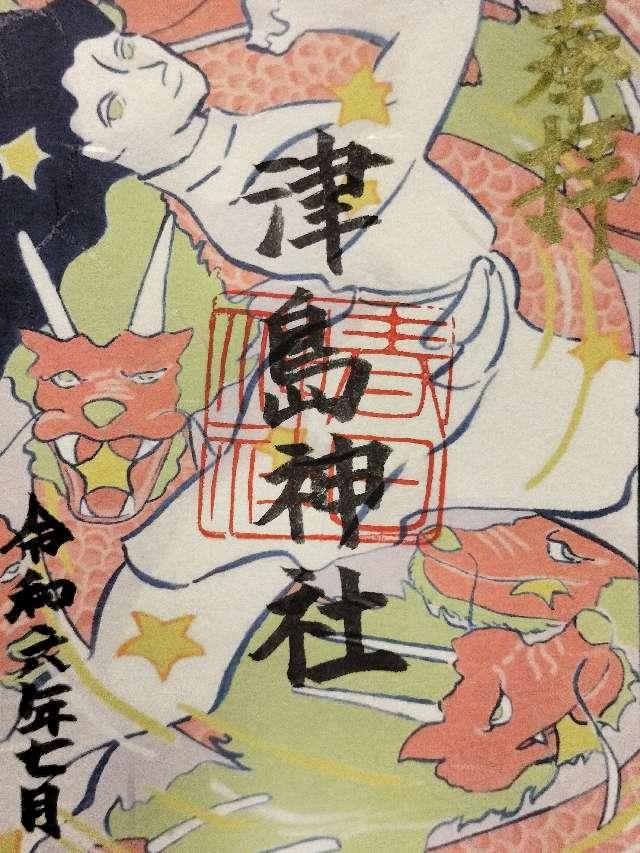 奉拝
津島神社
令和六年七月